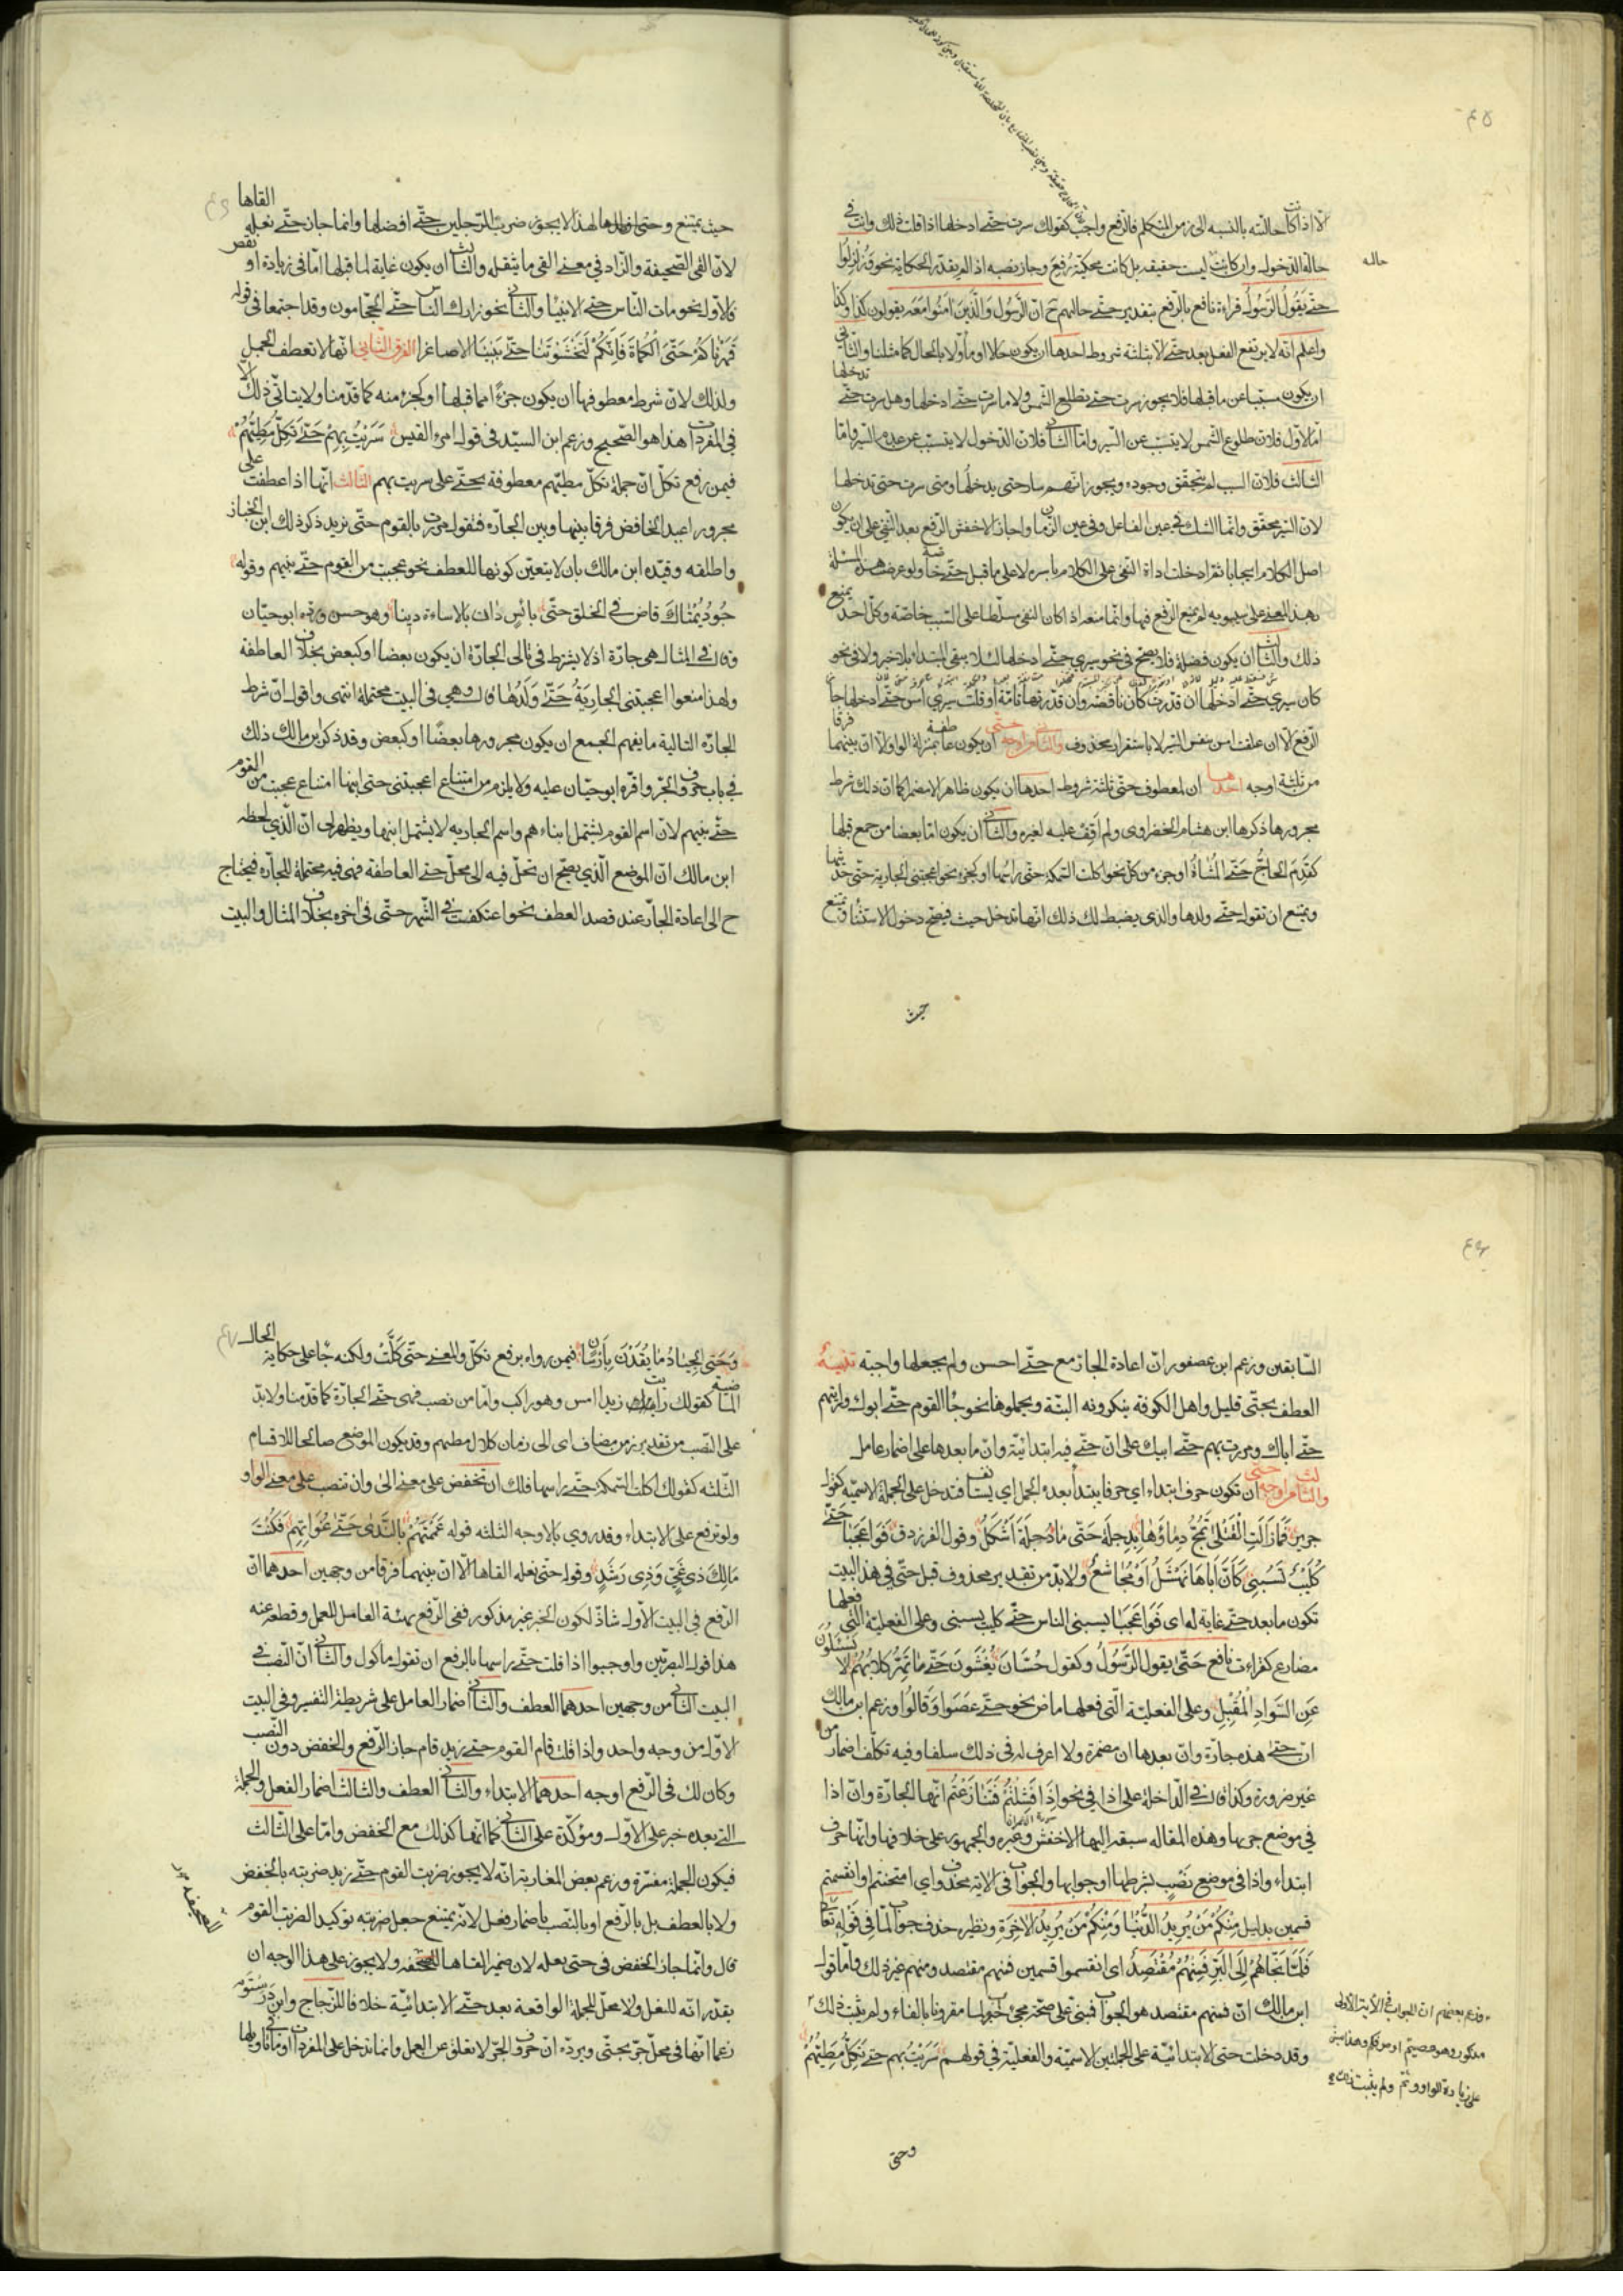 ٤٥
الا اذا كانت حالته بالنسبة الى زمن التكلم فالرفع واجب كقولك سرت حتى ادخلها اذا قلت ذلك وانت في
حالة الدخول وان كانت ليست حقيقة بل كانت محكية رفع وجاز نصبه اذا لم يقدر الحكاية نحو وَزُلْزِلُوا
حاله
حتى يَقُولُ الرَّسُولُ قراءة نافع بالرفع بتقدير حتى حالهم ح ان الرسول والذين امنوا معه يقولون كذا وكذا
واعلم انه لا يرتفع الفعل بعد حتى الا بثلثة شروط احدها ان يكون حالا او مأولا بالحال كما مثلنا والثاني
ان يكون مسببا عن ما قبلها فلا يجوز سرت حتى تطلع الشمس ولا ما سرت حتى ادخلها وهل سرت حتى تدخلها
اما الاول فلان طلوع الشمس لا يتسبب عن السير واما الثاني فلان الدخول لا يتسبب عن عدم السير واما
الثالث فلان السبب لم يتحقق وجوده ويجوز ايهم سار حتى يدخلها ومتى سرت حتى تدخلها
لان السير محقق وانما الشك في عين الفاعل وفي عين الزمان واجاز الاخفش الرفع بعد النفي على ان يكون
اصل الكلام ايجابا ثم ادخلت اداة النفي على الكلام باسره لا على ما قبل حتى خاصة ولو عرضت هذه المسئلة
بهذا المعنى على سيبويه لم يمنع الرفع فيها وانما منعه اذا كان النفي مسلطا على السبب خاصة وكل احد يمنع
ذلك والثالث ان يكون فضلة فلا يصح في نحو سيري حتى ادخلها لئلا يبقى المبتدا بلا خبر ولا في نحو
كان سيري حتى ادخلها ان قدرت كان ناقصة وان قدرتها تامة او قلت سيري امس حتى ادخلها جاز
الرفع الا ان علقت امس بنفس السير لا باستقرار محذوف والثاني من اوجه حتى ان يكون عاطفة بمنزلة الواو الا ان بينهما فرقا
من ثلثة اوجه احدها ان لمعطوف حتى ثلثة شروط احدها ان يكون ظاهرا لا مضمرا كما ان ذلك شرط
مجرورها ذكرها ابن هشام الخضراوي ولم اقف عليه لغيره والثاني ان يكون اما بعضا من جمع قبلها
كقَدِمَ الحاجُّ حتى المشاةُ او جزء من كل نحو اكلت السمكة حتى راسها او كجزء نحو اعجبتني الجارية حتى حديثها
ويمتنع ان تقول حتى ولدها والذي يضبط لك ذلك انها تدخل حيث يصح دخول الاستثناء ويمتنع
حيث
حيث يمتنع وحتى ولدها لهذا لا يجوز ضربت الرجلين حتى افضلهما وانما جاز حتى نعله القاها
لان القى الصحيفة والزاد في معنى القى ما يثقله والثالث ان يكون غاية لما قبلها اما في زيادة او نقص
فالاول نحو مات الناس حتى الانبياء والثاني نحو زارك الناس حتى الحجامون وقد اجتمعا في قوله
قَهَرْنَاكُمْ حَتَّى الْكُمَاةَ فَإِنَّكُمْ لَتَخْشَوْنَنَا حتى بَنِينَا الاصاغرا الفرق الثاني انها لا تعطف الجمل
ولذلك لان شرط معطوفها ان يكون جزءا مما قبلها او كجزء منه كما قدمنا ولا يتاتى ذلك الا
في المفردات هذا هو الصحيح وزعم ابن السيد في قول امرئ القيس سَرَيْتُ بِهِمْ حَتَّى تَكِلُّ مَطِيُّهُمْ
فيمن رفع تكل ان جملة تكل مطيهم معطوفة بحتى على سريت بهم الثالث انها اذا عطفت على
مجرور اعيد الخافض فرقا بينها وبين الجارة فتقول مررت بالقوم حتى بزيد ذكر ذلك ابن الخباز
واطلقه وقيده ابن مالك بان لا يتعين كونها للعطف نحو عجبت من القوم حتى بنيهم وقوله
جُودُ يُمْنَاكَ فاض في الخلق حتى بائسٍ دان بالاساءة دينا وهو حسن ورده ابو حيان
وقال في المثال هي جارة اذ لا يشترط في تالي الجارة ان يكون بعضا او كبعض بخلاف العاطفة
ولهذا منعوا اعجبتني الجارِيَةُ حَتَّى وَلَدُهَا قال وهي في البيت محتملة انتهى واقول ان شرط
الجارة التالية ما يفهم الجمع ان يكون مجرورها بعضًا او كبعض وقد ذكر ابن مالك ذلك
في باب حروف الجر واقره ابو حيان عليه ولا يلزم من امتناع اعجبتني حتى ابنها امتناع عجبت من القوم
حتى بنيهم لان اسم القوم يشتمل ابناءهم واسم الجارية لا يشتمل ابنها ويظهر لي ان الذي لحظه
ابن مالك ان الموضع الذي يصح ان تحل فيه الى محل حتى العاطفة فهي فيه محتملة للجارة فيحتاج
ح الى اعادة الجار عند قصد العطف نحو اعتكفت في الشهر حتى في اخره بخلاف المثال والبيت
٤٦
السابقين وزعم ابن عصفور ان اعادة الجار مع حتى احسن ولم يجعلها واجبة تنبيه
العطف بحتى قليل واهل الكوفة ينكرونه البتة ويحملوها نحو جاء القوم حتى ابوك ورايتهم
حتى اباك ومررت بهم حتى ابيك على ان حتى فيه ابتدائية وان ما بعدها على اضمار عامل
والثالث من اوجه حتى ان تكون حرف ابتداء اي حرفا يبتدأ بعده الجمل اي يستانف فتدخل على الجملة الاسمية كقول
جرير فَمَا زَالَتِ الْقَتْلَى تَمُجُّ دِمَاؤَهَا بِدِجلَةَ حَتَّى مَاءُ دِجلَةَ اَشْكَلُ وقول الفرزدق فَوَا عَجَبًا حتى
كُلَيْبُ تَسُبُّنِي كَأَنَّ اَبَاهَا نَهْشَلُ اَوْ مُجَاشِعُ ولا بد من تقدير محذوف قبل حتى في هذا البيت
تكون ما بعد حتى غاية له اي فَوَا عَجَبَا يسبني الناس حتى كليب يسبني وعلى الفعلية التي فعلها
مضارع كقراءت نافع حَتَّى يقول الرَّسُولُ وكقول حَسَّان يُغْشَوْنَ حَتَّى مَا تَهِرُّ كِلَابُهُمُ لا يَسْئَلُونَ
عَنِ السَّوَادِ الْمُقْبِلِ وعلى الفعلية التي فعلها ماض نحو حتى عَفَوا وَقَالُوا وزعم ابن مالك
ان حتى هذه جارة وان بعدها ان مضمرة ولا اعرف له في ذلك سلفا وفيه تكلف اضمار من
غير ضرورة وكذا قال في الداخلة على اذا في نحو حتى اِذَا فَشِلْتُمْ وَتَنَازَعْتُمْ انها الجارة وان اذا
في موضع جر بها وهذه المقالة سبقه اليها الاخفش وغيره والجمهور على خلافها وانها حرف
ابتداء واذا في موضع نَصْبٍ بشرطها او جوابها والجواب في الاية محذوف اي امتحنتم او انقسمتم
قسمين بدليل مِنْكُمْ مَنْ يُرِيدُ الدُّنْيَا وَمِنْكُمْ مَنْ يُرِيدُ الاخِرَةِ ونظيره حذف جواب لما في قَوْلِهِ تعالى
فَلَمَّا نَجَّاهُمْ اِلَى البَرِّ فَمِنْهُمْ مُقْتَصِدٌ اى انقسموا قسمين فمنهم مقتصد ومنهم غير ذلك واما قول
ابن مالك ان فمنهم مقتصد هو الجواب فمبني على صحة مجئ جواب لما مقرونا بالفاء ولم يثبت ذلك
وزعم بعضهم ان الجواب في الاية الاولى
مذكور وهو عصيتم او صرفكم وهذا مبني
على زيادة الواو وثم ولم يثبت ذلك
وقد دخلت حتى الابتدائية على الجملتين الاسمية والفعلية في قولهم سَرَيْتُ بِهِم حتى تَكِلُّ مَطِيُّهُمْ
وحتى
٤٧
وَحَتَّى الجِيَادُ مَا يُقَدْنَ بِاَرْسَانِ فيمن رواه برفع تكل والمعنى حتى كَلَّتْ ولكنه جاء على حكاية الحال
الماضية كقولك رايت زيدا امس وهو راكب واما من نصب فهي حتى الجارة كما قدمنا ولا بد
على النصب من تقدير زمن مضاف اى الى زمان كلال مطيهم وقد يكون الموضع صالحا للاقسام
الثلثة كقولك اكلت السمكة حتى راسها فلك ان تخفض على معنى الى وان تنصب على معنى الواو
ولو ترفع على الابتداء وقد روي بالاوجه الثلثه قوله عَمَمْتَهُمْ بِالنَّدَى حتى غُوَاتِهِمْ فَكُنْتَ
مَالِكَ ذِي غَيٍّ وَذِى رَشَدٍ وقوله حتى نعله القاها الا ان بينهما فرقا من وجهين احدهما ان
الرفع في البيت الاول شاذ لكون الخبر غير مذكور ففي الرفع تهيئة العامل للعمل وقطعه عنه
هذا قول البصريين واوجبوا اذا قلت حتى راسها بالرفع ان تقول ماكول والثاني ان النصب في
البيت الثاني من وجهين احدهما العطف والثاني اضمار العامل على شريطة التفسير وفي البيت
الاول من وجه واحد واذا قلت قام القوم حتى زيد قام جاز الرفع والخفض دون النصب
وكان لك في الرفع اوجه احدهما الابتداء والثاني العطف والثالث اضمار الفعل والجملة
التي بعده خبر على الاول ومؤكدة على الثاني كما انها كذلك مع الخفض واما على الثالث
فيكون الجملة مفسرة وزعم بعض المغاربة انه لا يجوز ضربت القوم حتى زيد ضربته بالخفض
ولا بالعطف بل بالرفع او بالنصب باضمار فعل لانه يمتنع جعل ضربته توكيدا لضربت القوم
قال وانما جاز الخفض في حتى نعله لان ضمير القاها للصحيفة ولا يجوز على هذا الوجه ان
يقدر انه للنعل ولا محل للجملة الواقعة بعد حتى الابتدائية خلافا للزجاج وابن دَرَسْتَوَيه
زعما انها في محل جر بحتى ويرده ان حروف الجر لا تعلق عن العمل وانما تدخل على المفردات او ما في تاويلها